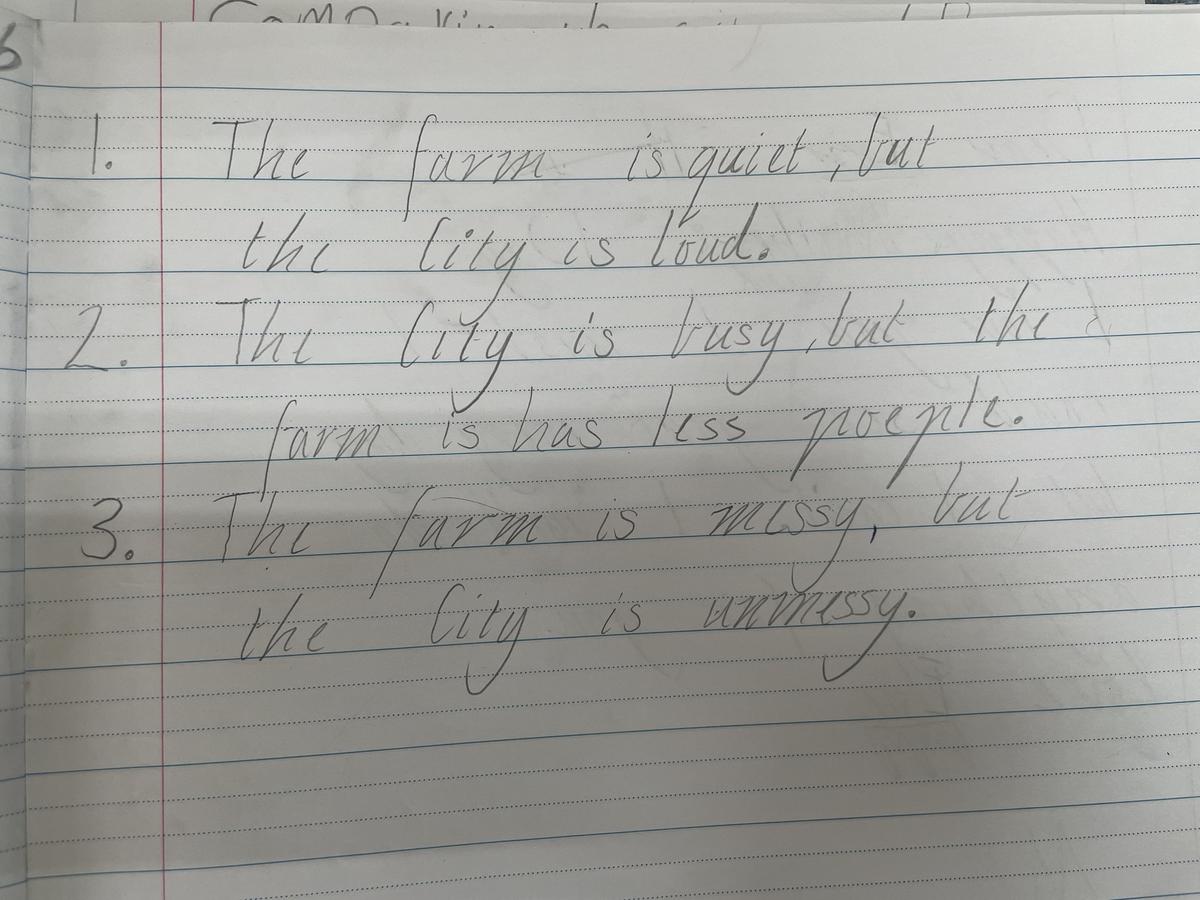 1. The farm is quiet, but
the City is loud.
2. The City is busy, but the
farm is has less poeple.
3. The farm is messy, but
the City is unmessy.